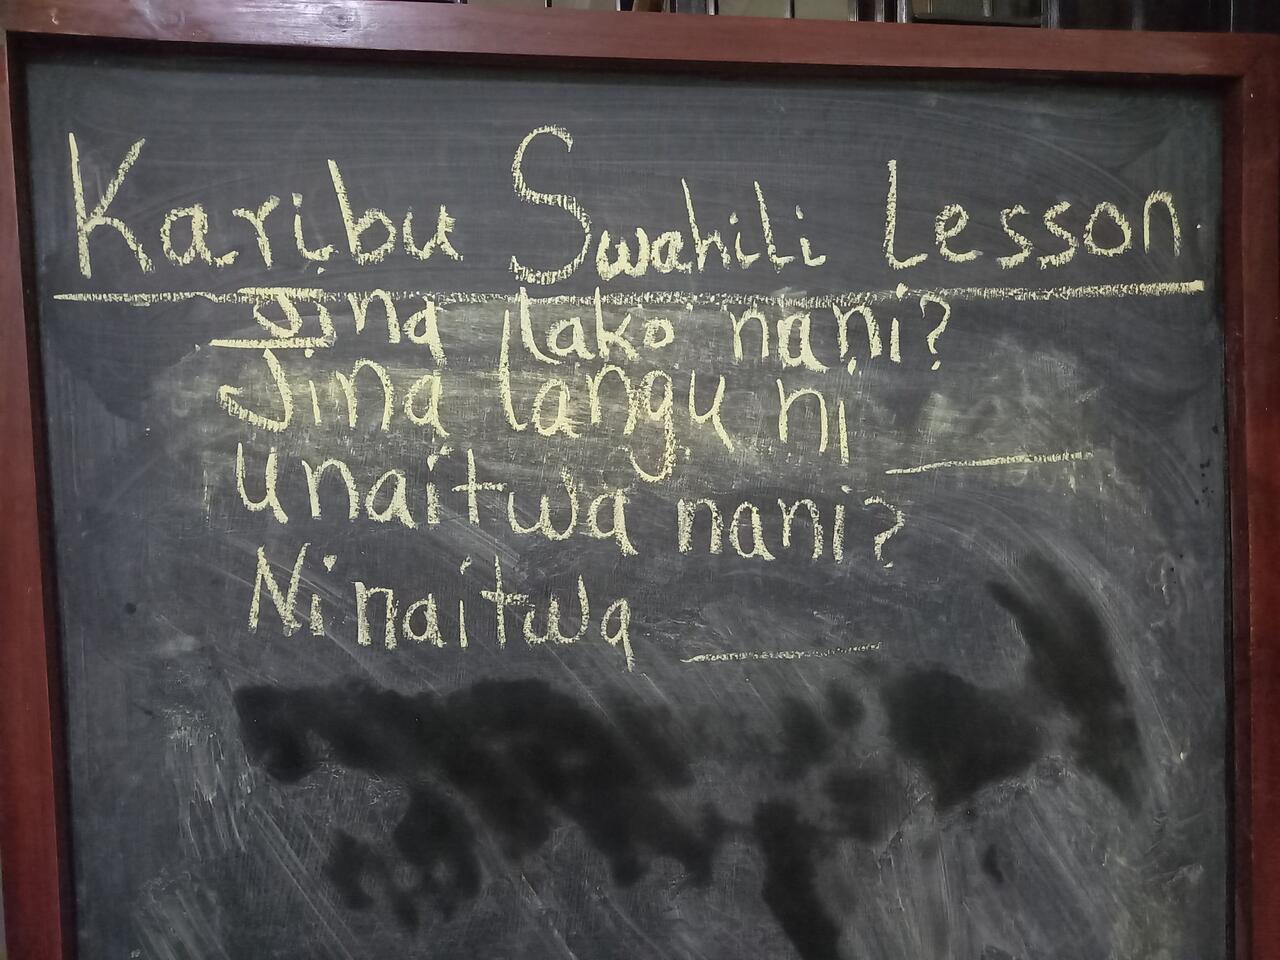 Karibu Swahili Lesson
Jina lako nani?
Jina langu ni ______
Unaitwa nani?
Ninaitwa ______